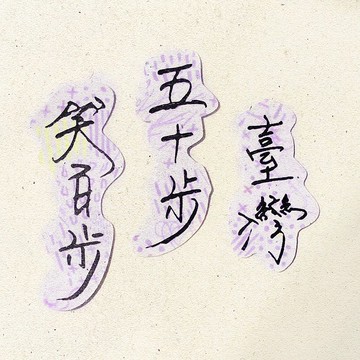 臺灣
五十步
笑百步